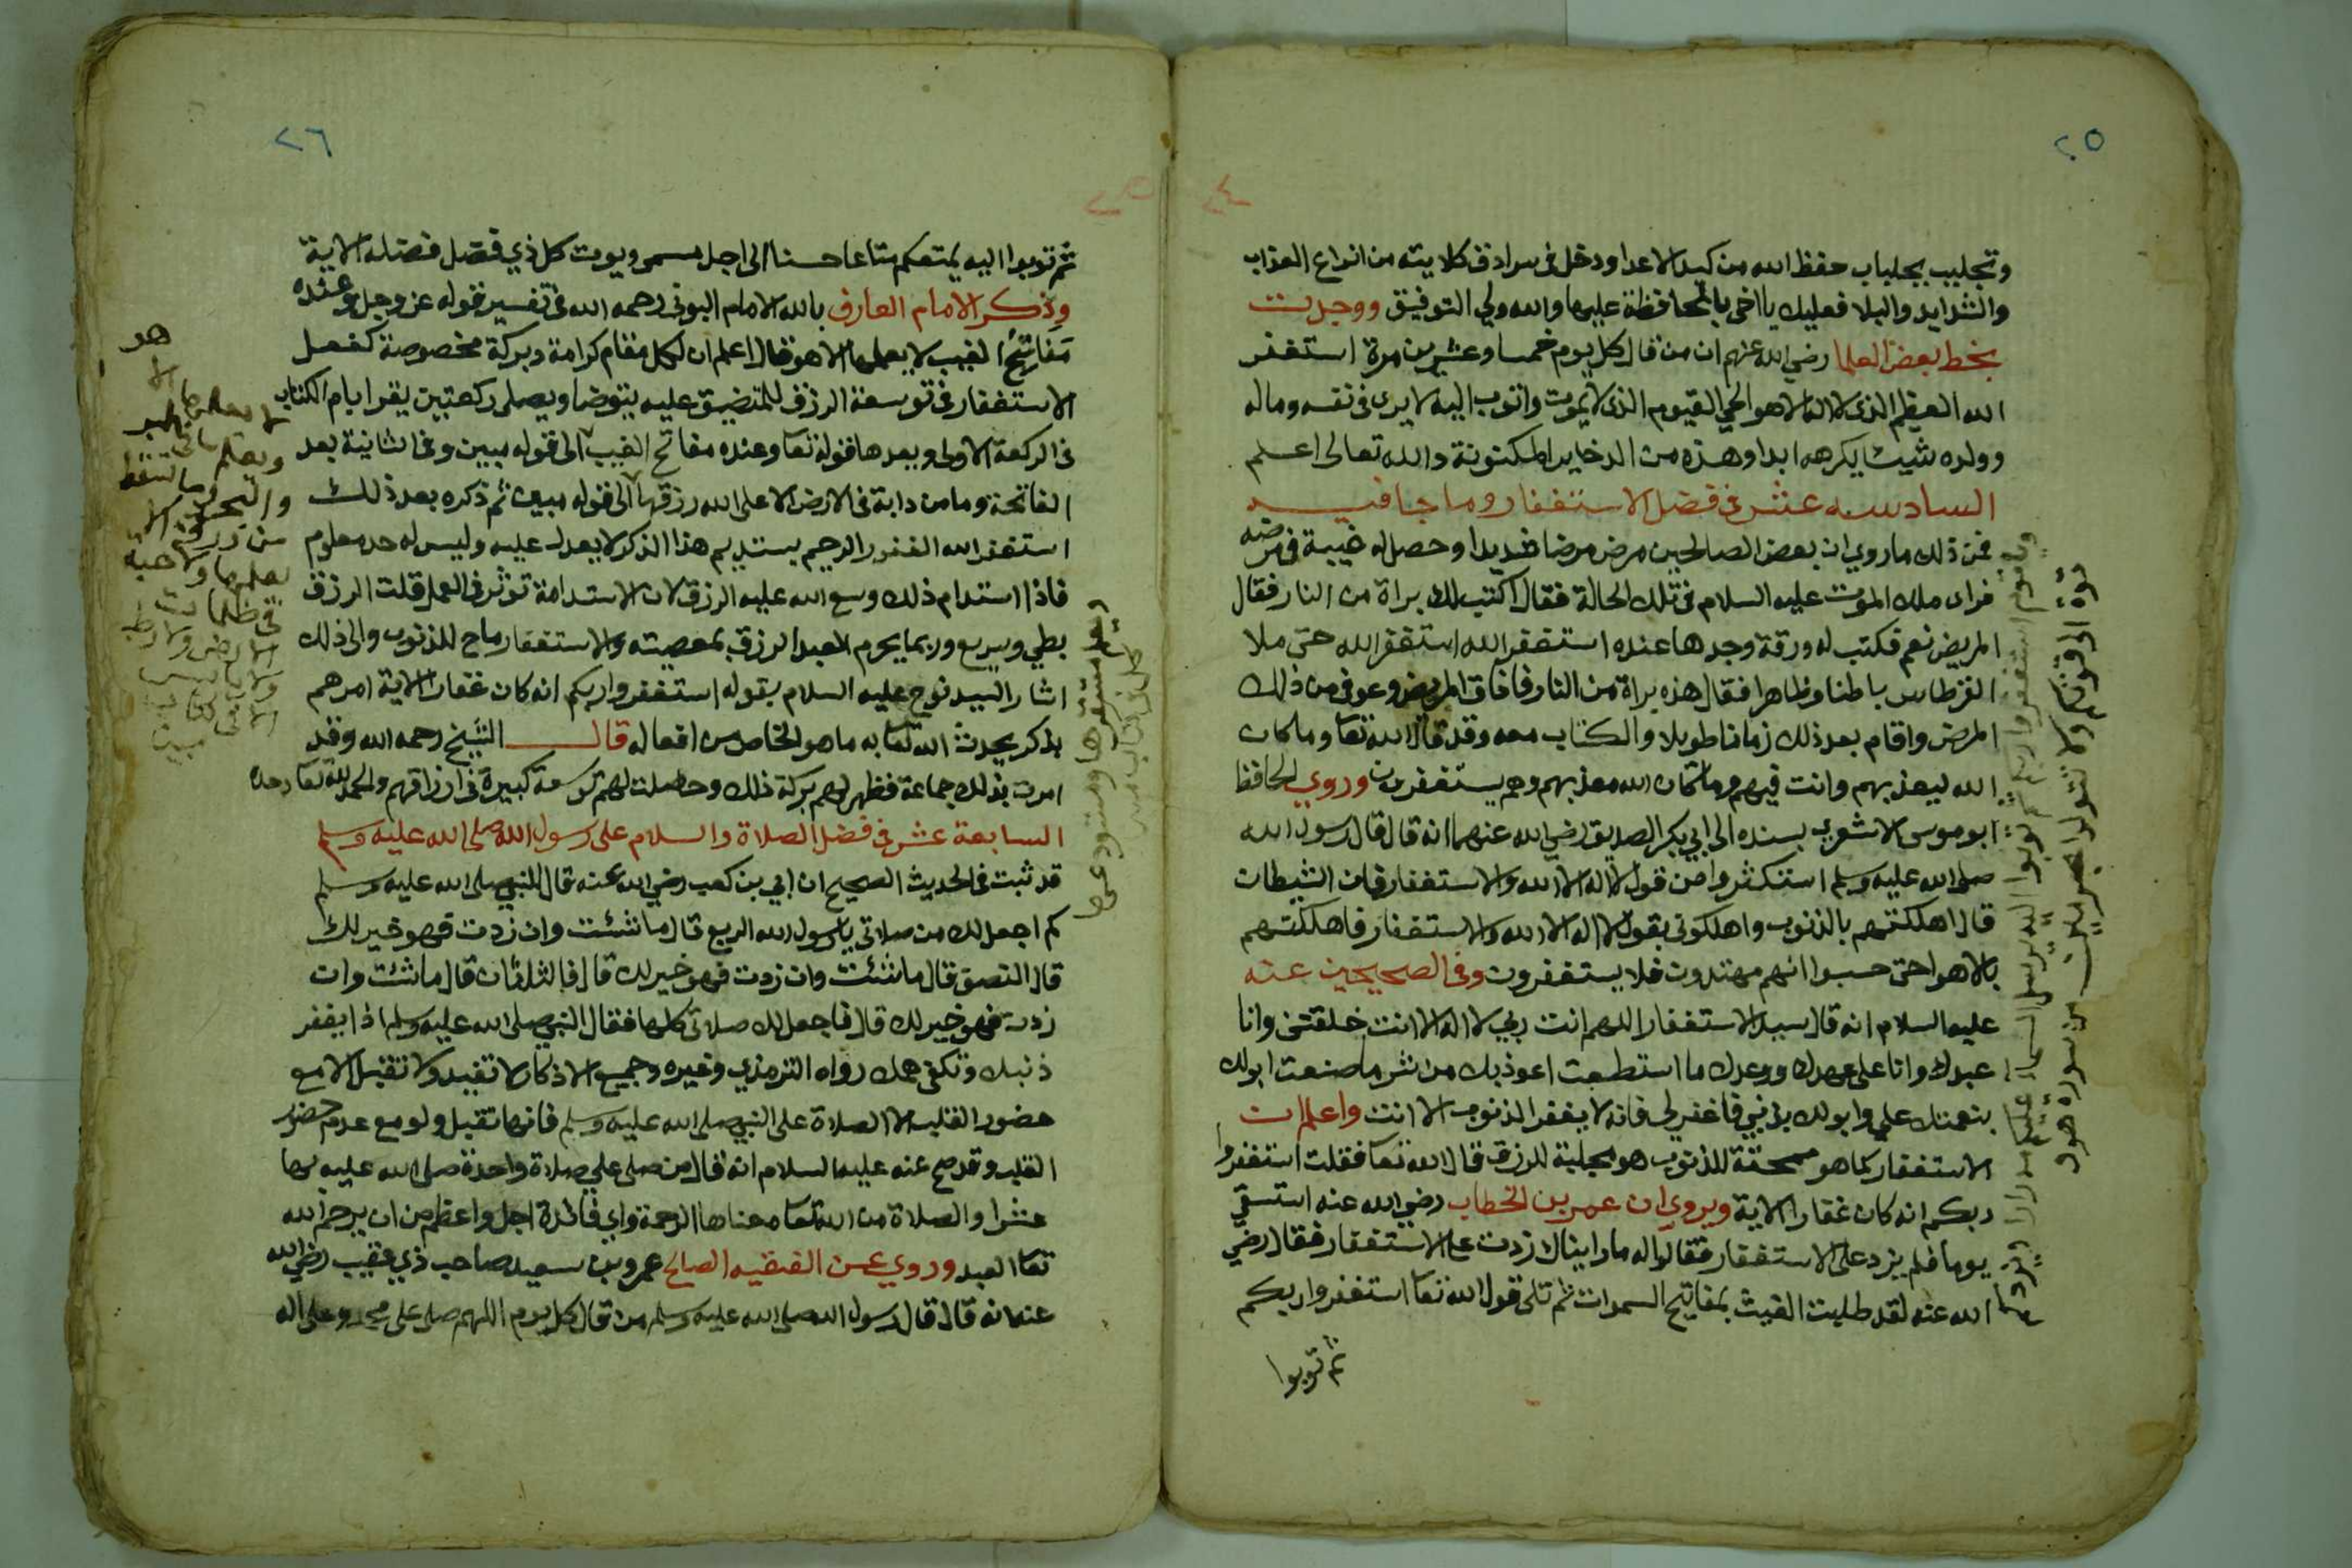 ٢٥
٢٤
وتجلبب بجلباب حفظ الله من كيد الاعدا ودخل في سرادق كلايته من انواع العذاب
والشدايد والبلا فعليك يا اخي بالمحافظة عليها والله ولي التوفيق ووجدت
بخط بعض العلما رضي الله عنهم ان من قال كل يوم خمسا وعشرين مرة استغفر
الله العظيم الذي لا اله الا هو الحي القيوم الذي لا يموت واتوب اليه لا يرى في نفسه وماله
وولده شيئ يكرهه ابدا وهذه من الدخاير المكنونة والله تعالى اعلم
السادسه عشر في فضل الاستغفار وما جا فيه
فمن ذلك ما روي ان بعض الصالحين مرض مرضا شديدا وحصل له غيبة في مرضه
فراى ملك الموت عليه السلام في تلك الحالة فقال اكتب لك براة من النار فقال
المريض نعم فكتب له ورقة وجدها عنده استغفر الله استغفر الله حتى ملا
القرطاس باطنا وظاهرا فقال هذه براة من النار فافاق المريض وعوفي من ذلك
المرض واقام بعد ذلك زمانا طويلا والكتاب معه وقد قال الله تعا وما كان
الله ليعذبهم وانت فيهم وما كان الله معذبهم وهم يستغفرون وروي الحافظ
ابو موسى الاشعري بسنده الى ابي بكر الصديق رضي الله عنهما انه قال قال رسول الله
صلى الله عليه وسلم استكثروا من قول لا اله الا الله والاستغفار فان الشيطان
قال اهلكتهم بالذنوب واهلكوني بقول لا اله الا الله والاستغفار فاهلكتهم
بالاهوا حتى حسبوا انهم مهتدون فلا يستغفرون وفي الصحيحين عنه
عليه السلام انه قال سيد الاستغفار اللهم انت ربي لا اله الا انت خلقتني وانا
عبدك وانا على عهدك ووعدك ما استطعت اعوذ بك من شر ما صنعت ابو لك
بنعمتك علي وابو لك بذنبي فاغفر لي فانه لا يغفر الذنوب الا انت واعلم ان
الاستغفار كما هو ممحقة للذنوب هو مجلبة للرزق قال الله تعا فقلت استغفروا
ربكم انه كان غفارا الاية ويروي ان عمر بن الخطاب رضي الله عنه استسقى
يوما فلم يزد على الاستغفار فقالوا له ما رايناك زدت على الاستغفار فقال رضي
الله عنه لقد طلبت الغيث بمفاتيح السموات ثم تلى قول الله تعا استغفروا ربكم
ثم توبوا
ويقوم استغفروا ربكم ثم توبوا اليه يرسل السماء عليكم مدرارا ويزدكم
قوة الى قوتكم ولا تتولوا مجرمين من سورة هود
٢٦
٢٥
ثم توبوا اليه يمتعكم متاعا حسنا الى اجل مسمى ويوت كل ذي فضل فضله الاية
وذكر الامام العارف بالله الامام البوني رحمه الله في تفسير قوله عز وجل وعنده
مفاتح الغيب لا يعلمها الا هو قال اعلم ان لكل مقام كرامة وبركة مخصوصة كفعل
الاستغفار في توسعة الرزق للمتضيق عليه يتوضا ويصلي ركعتين يقرا بام الكتاب
في الركعة الاولى وبعدها قوله تعا وعنده مفاتح الغيب الى قوله مبين وفي الثانية بعد
الفاتحة وما من دابة في الارض الا على الله رزقها الى قوله مبين ثم ذكره بعد ذلك
استغفر الله الغفور الرحيم يستديم هذا الذكر لا يعدل عليه وليس له حد معلوم
فاذا استدام ذلك وسع الله عليه الرزق لان الاستدامة توثر في العمل قلت الرزق
بطي وسريع وربما يحرم العبد الرزق بمعصيته والاستغفار ماح للذنوب والى ذلك
اشار السيد نوح عليه السلام بقوله استغفروا ربكم انه كان غفارا الاية امرهم
بذكر يحدث الله تعا به ما هو الخاص من افعاله قال الشيخ رحمه الله وقد
امرت بذلك جماعة فظهر لهم بركة ذلك وحصلت لهم توسعة كبيرة في ارزاقهم والحمد لله تعا وحده
السابعة عشر في فضل الصلاة والسلام على رسول الله صلى الله عليه وسلم
قد ثبت في الحديث الصحيح ان ابي بن كعب رضي الله عنه قال للنبي صلى الله عليه وسلم
كم اجعل لك من صلاتي يا رسول الله الربع قال ما شئت وان زدت فهو خير لك
قال النصف قال ما شئت وان زدت فهو خير لك قال فالثلثان قال ما شئت وان
زدت فهو خير لك قال فاجعل لك صلاتي كلها فقال النبي صلى الله عليه وسلم اذا يغفر
ذنبك وتكفى همك رواه الترمذي وغيره وجميع الاذكار لا تفيد ولا تقبل الا مع
حضور القلب الا الصلاة على النبي صلى الله عليه وسلم فانها تقبل ولو مع عدم حضور
القلب وقد صح عنه عليه السلام انه قال من صلى علي صلاة واحدة صلى الله عليه بها
عشرا والصلاة من الله تعا معناها الرحمة واي فائدة اجل واعظم من ان يرحم الله
تعا العبد وروي عن الفقيه الصالح عمرو بن سعيد صاحب ذي عقيب رضي الله
عنه انه قال قال رسول الله صلى الله عليه وسلم من قال كل يوم اللهم صل على محمد وعلى اله
هو
لا يعلمها الا
ويعلم ما في البر
والبحر وما تسقط
من ورقة الا
يعلمها ولا حبة
في ظلمات
الارض ولا رطب
ولا يابس
الا في كتاب
مبين
ويعلم مستقرها ومستودعها
كل في كتاب مبين